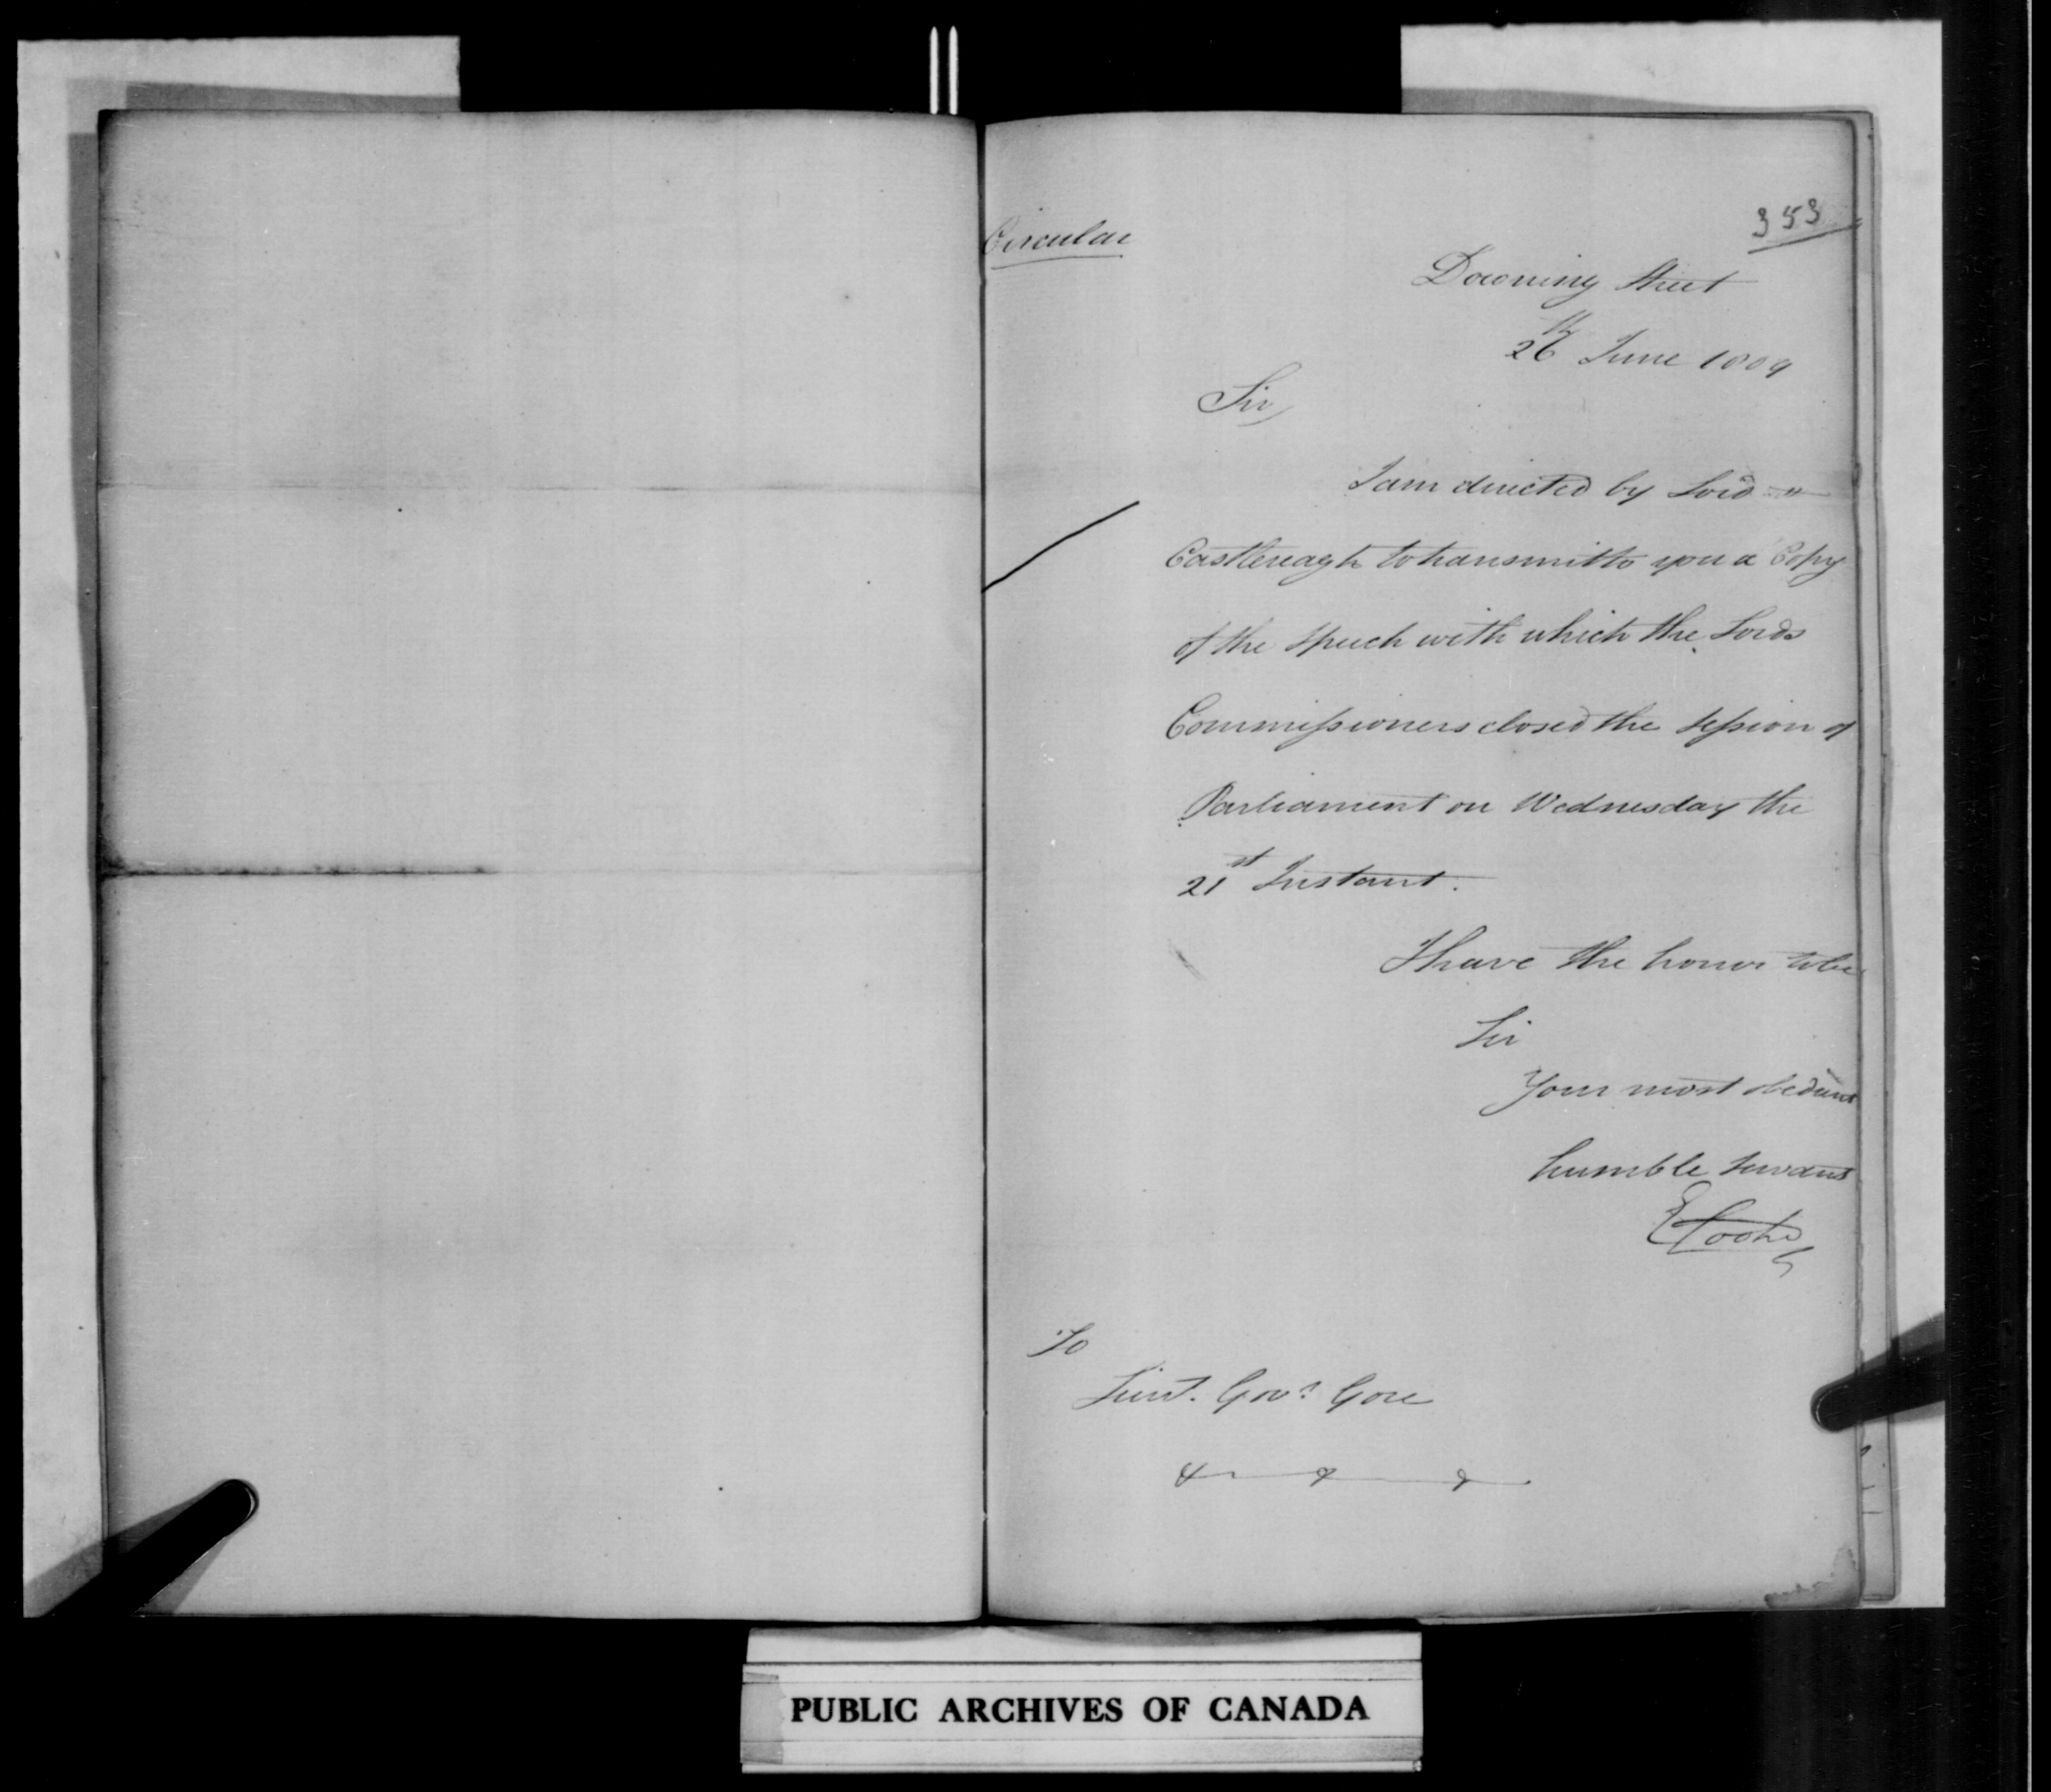 353
Circular
Downing Street
26th June 1809
Sir,
I am directed by Lord
Castlereagh to transmit to you a Copy
of the Speech with which the Lords
Commissioners closed the Session of
Parliament on Wednesday the
21st Instant.
I have the honor to be
Sir
Your most obedient
humble Servant
E Cooke
To
Lieut. Govr. Gore
&c &c &c
PUBLIC ARCHIVES OF CANADA